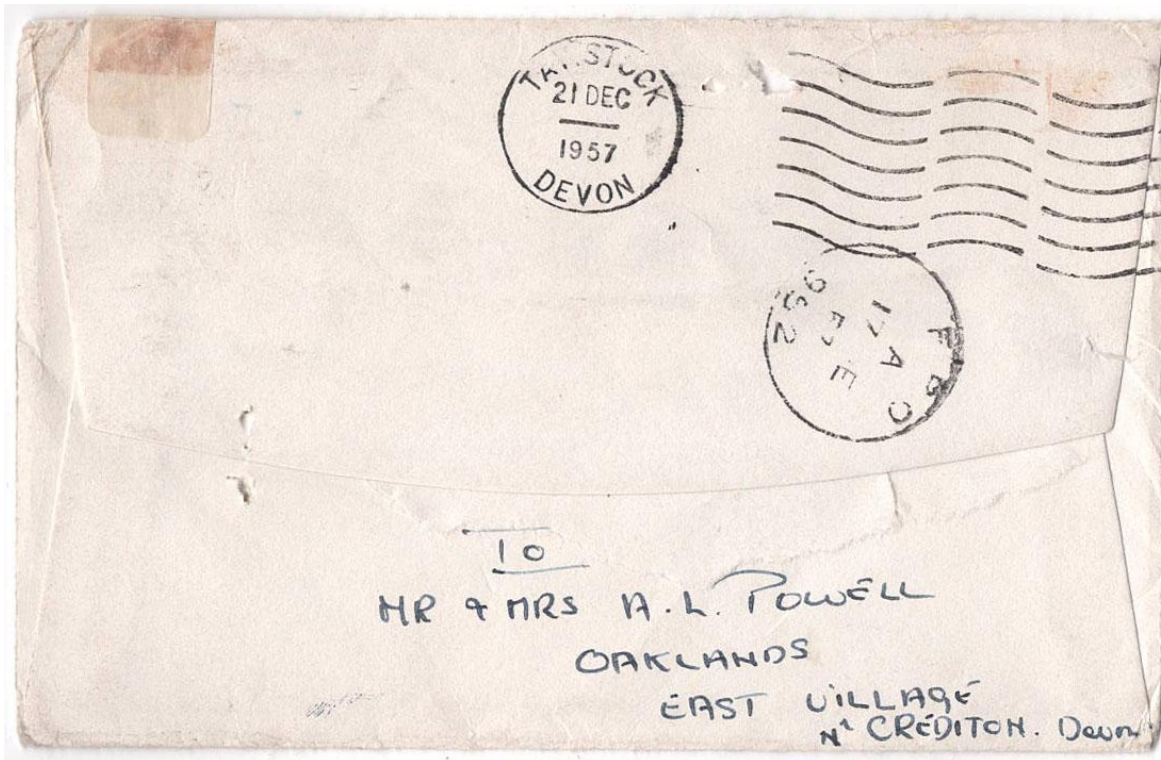 TAVISTOCK
21 DEC
1957
DEVON
TO
MR & MRS A.L. POWELL
OAKLANDS
EAST VILLAGE
Nr CREDITON. Devon